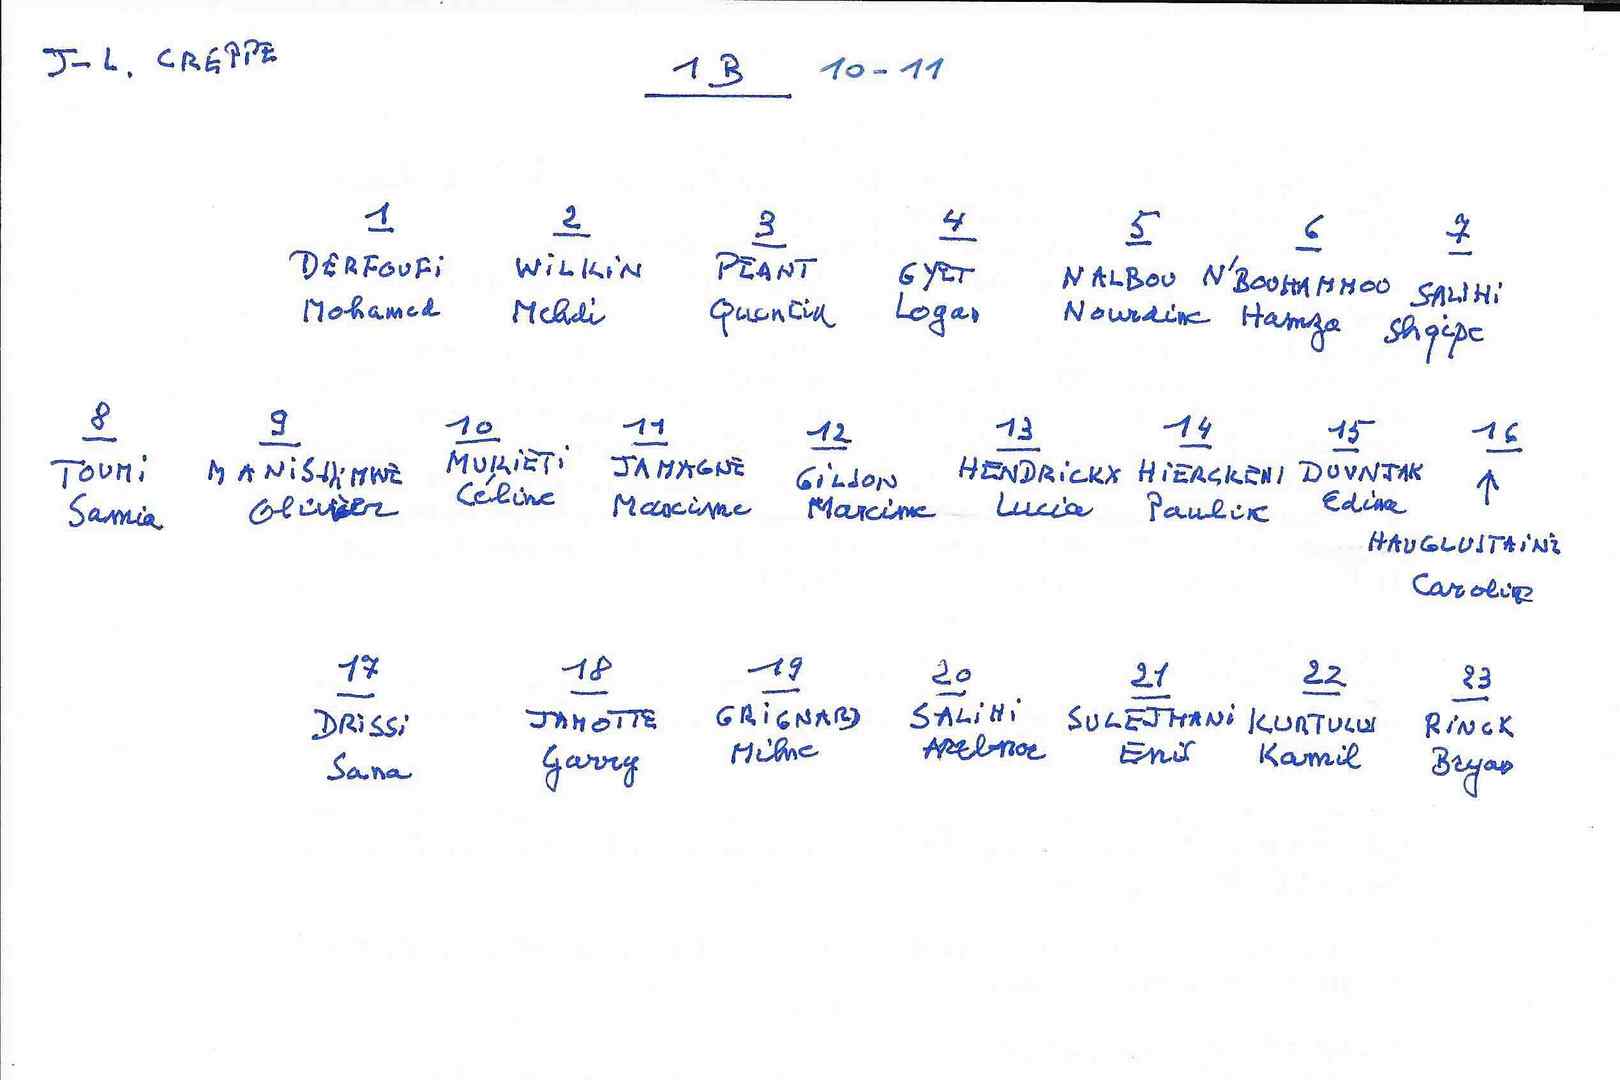 J-L. CREPPE
1B 10-11
1 2 3 4 5 6 7
DERFOUFi WiLKiN PEANT GYET NALBOU N'BOUHAMMOU SALIHi
Mohamed Mehdi Quentin Logan Nourdine Hamza Shqipe
8 9 10 11 12 13 14 15 16
TOUMi MANiSHiMWE MUKiETi JAMAGNE GiLSON HENDRiCKX HiERCKENS DUVNJAK ↑
Samia Olivier Céline Maxime Maxime Lucia Pauline Edina
HAUGLUSTAiNE
Caroline
17 18 19 20 21 22 23
DRiSSi JAMOTTE GRiGNARD SALiHi SULEJMANi KURTULUS RiNCK
Sana Garry Milne Enis Kamil Bryan